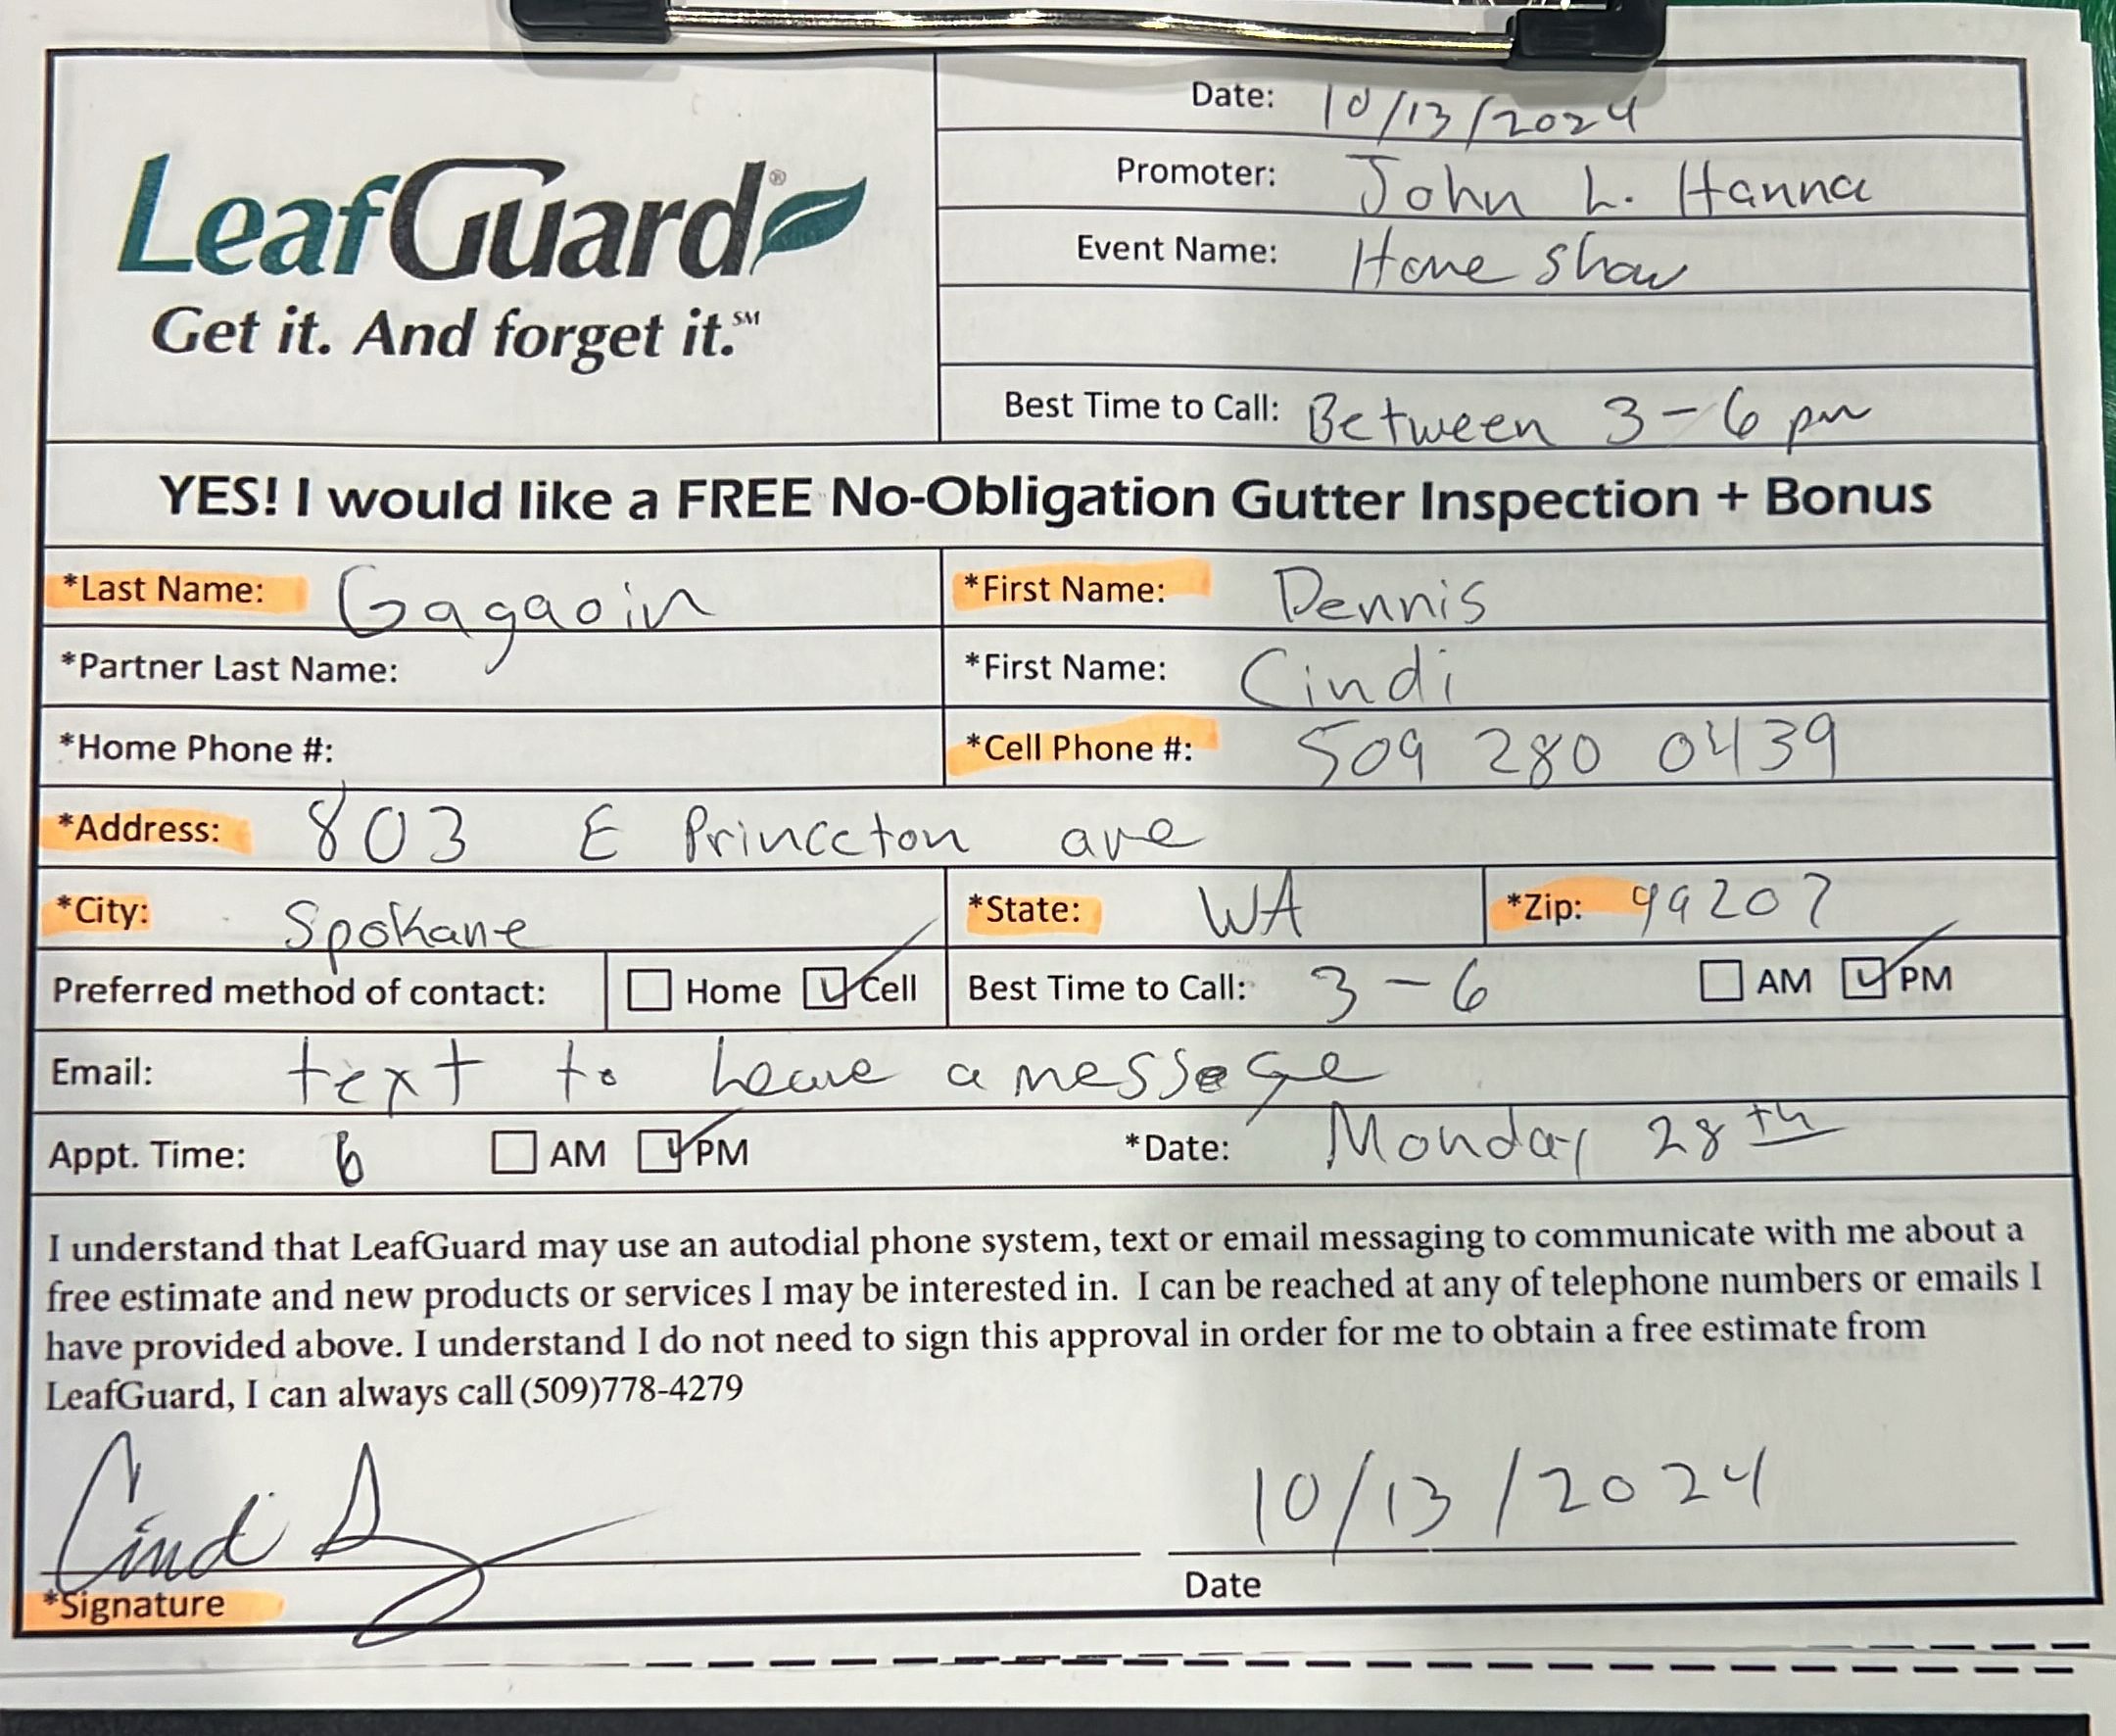 Date: 10/13/2024
LeafGuard®
Get it. And forget it.℠
Promoter: John L. Hanna
Event Name: Home show
Best Time to Call: Between 3-6 pm
YES! I would like a FREE No-Obligation Gutter Inspection + Bonus
*Last Name: Gagaoin *First Name: Dennis
*Partner Last Name: *First Name: Cindi
*Home Phone #: *Cell Phone #: 509 280 0439
*Address: 803 E Princeton ave
*City: Spokane *State: WA *Zip: 99207
Preferred method of contact: Home Cell Best Time to Call: 3-6 AM PM
Email: text to leave a message
Appt. Time: 6 AM PM *Date: Monday 28th
I understand that LeafGuard may use an autodial phone system, text or email messaging to communicate with me about a
free estimate and new products or services I may be interested in. I can be reached at any of telephone numbers or emails I
have provided above. I understand I do not need to sign this approval in order for me to obtain a free estimate from
LeafGuard, I can always call (509)778-4279
Cindi 10/13/2024
*Signature Date